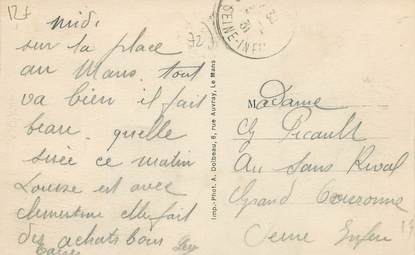 12f
midi
sur la place
au Mans. tout
va bien il fait
beau. quelle
sirée ce matin
Louise est avec
clementine elle fait
des achats bons
72
SEINE-INF
31
Imp.-Phot. A. Dolbeau, 6, rue Auvray, Le Mans
Madame
Picault
Au Sans Rival
Grand Couronne
Seine Infer